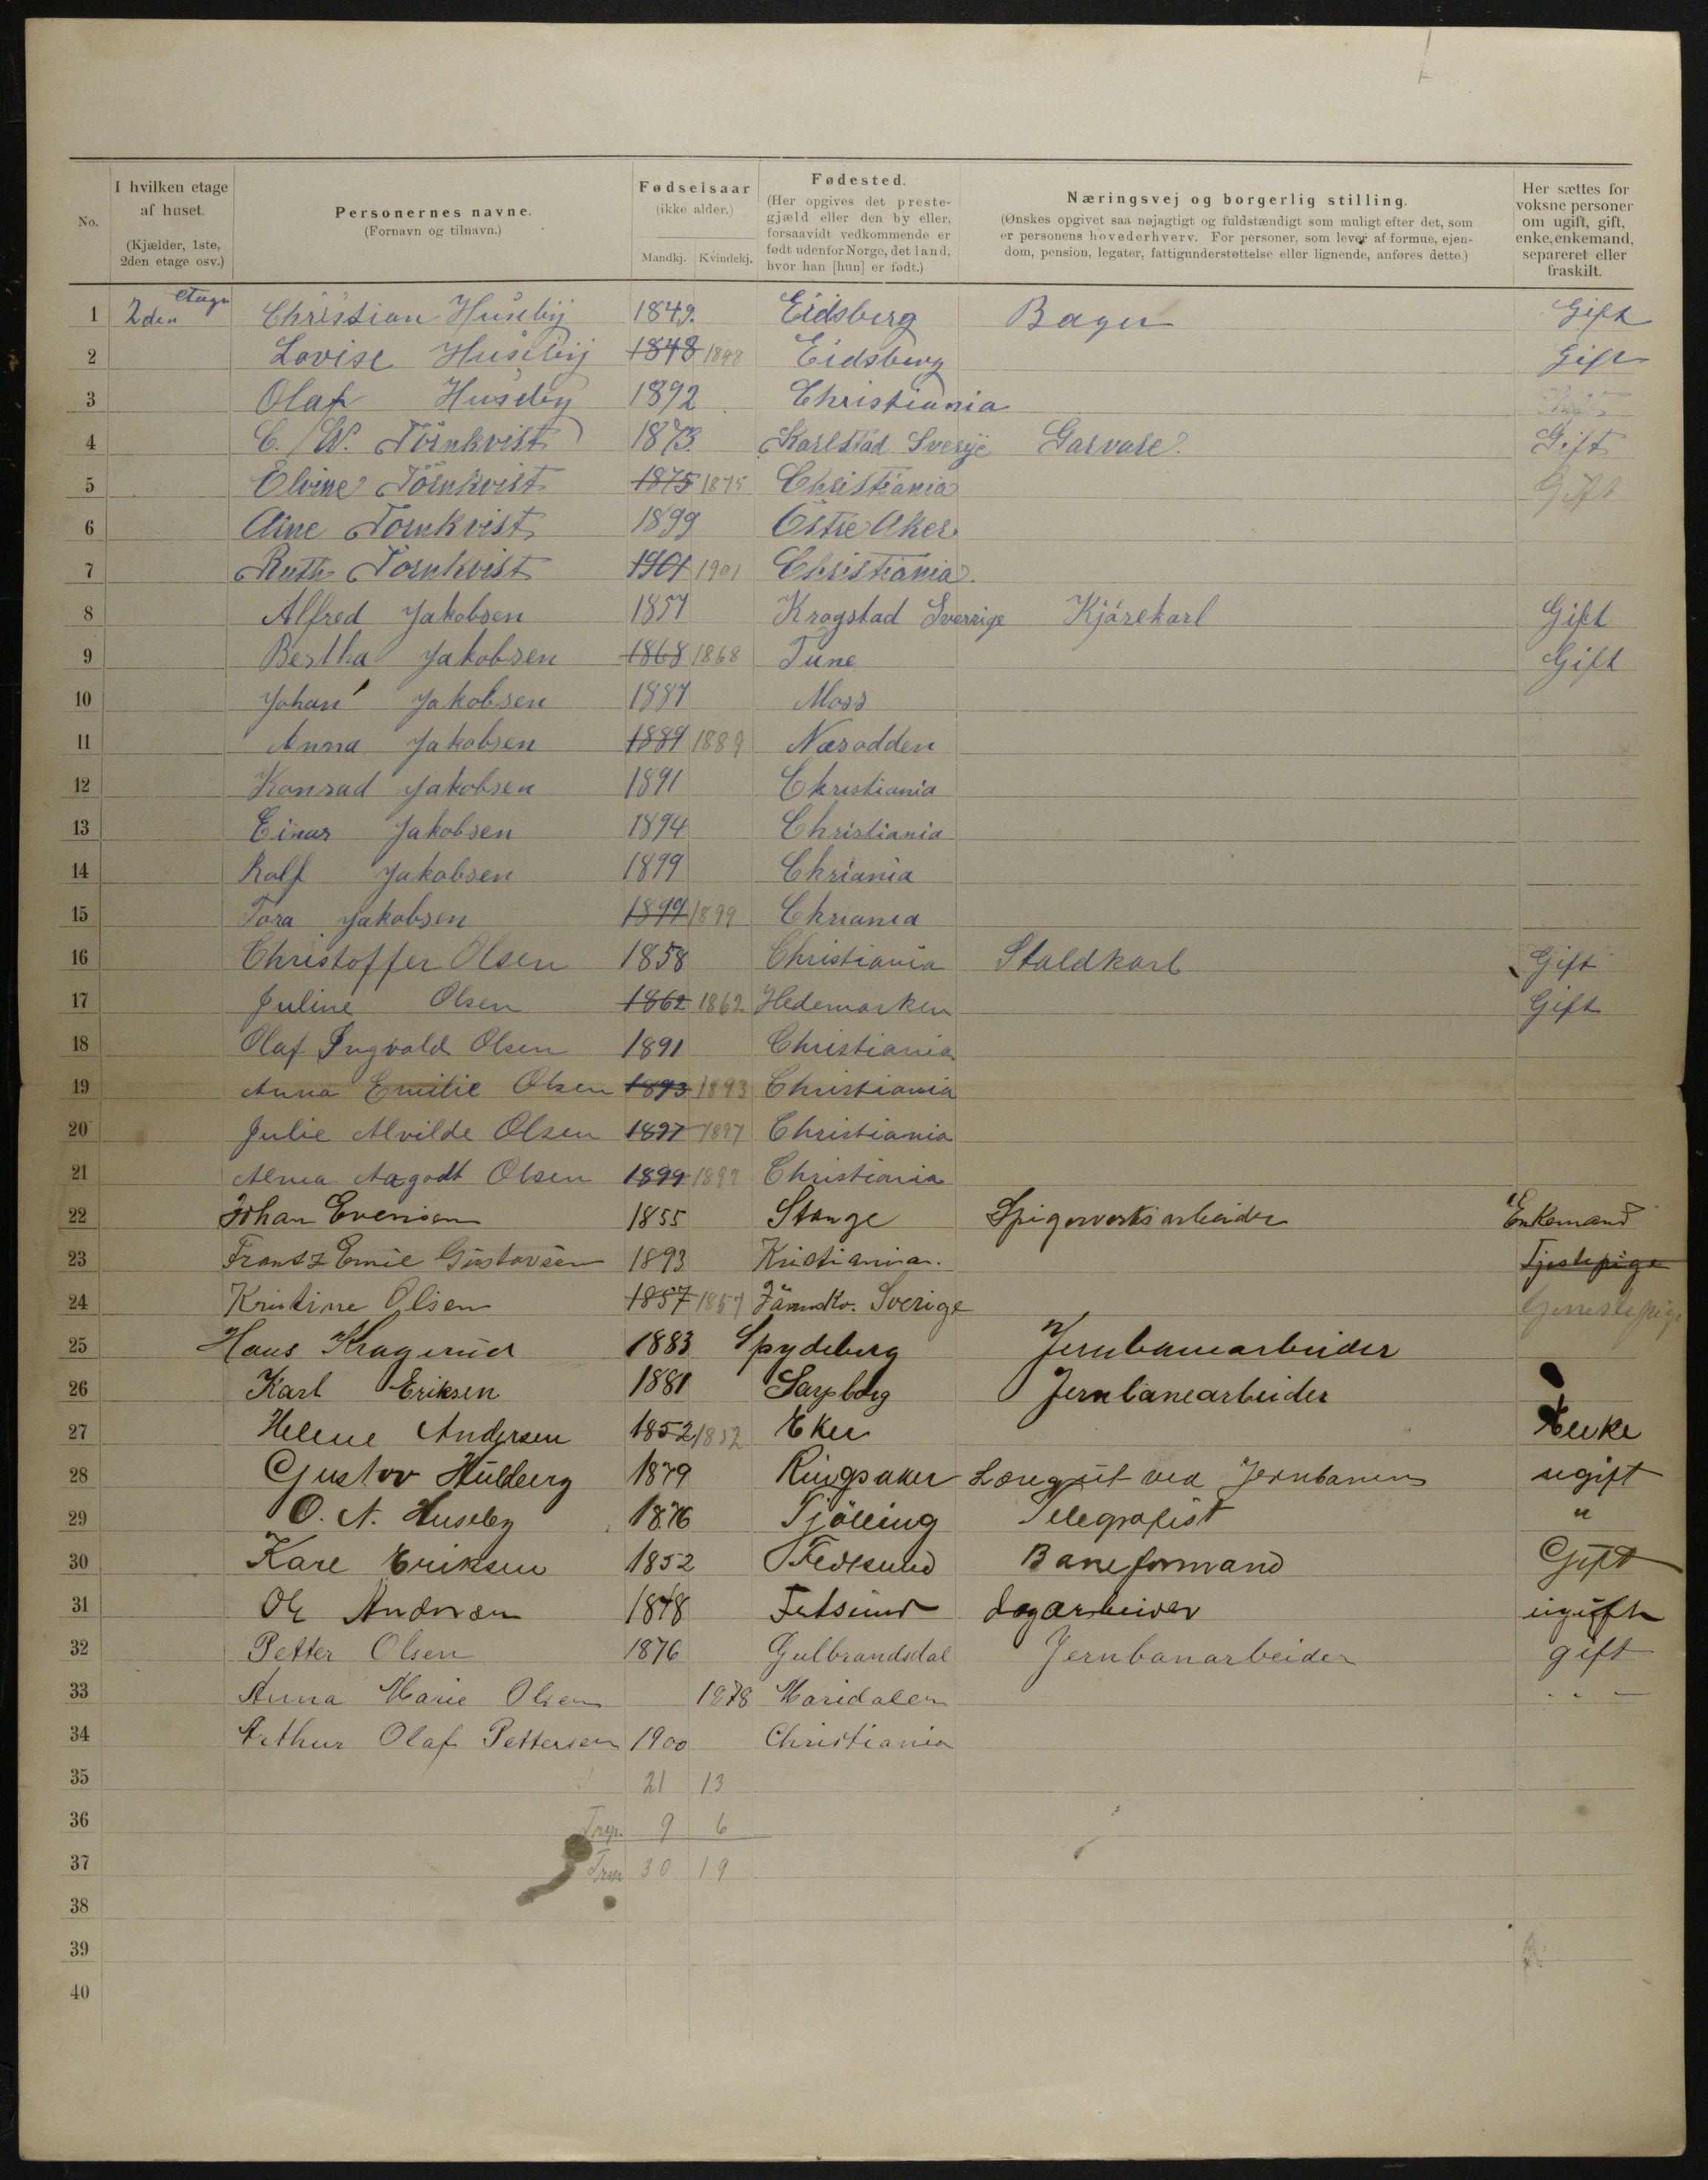 No.
I hvilken etage af huset. (Kjælder, 1ste, 2den etage osv.)
Personernes navne. (Fornavn og tilnavn.)
Fødselsaar (ikke alder.) Mandkj. Kvindekj.
Fødested. (Her opgives det prestegjæld eller den by eller, forsaavidt vedkommende er født udenfor Norge, det land, hvor han [hun] er født.)
Næringsvej og borgerlig stilling. (Ønskes opgivet saa nøjagtigt og fuldstændigt som muligt efter det, som er personens hovederhverv. For personer, som lever af formue, ejendom, pension, legater, fattigunderstøttelse eller lignende, anføres dette.)
Her sættes for voksne personer om ugift, gift, enke, enkemand, separeret eller fraskilt.
1 2den etage Christian Huseby 1849. Eidsberg Bager Gift
2 Lovise Huseby 1848 1848 Eidsberg Gift
3 Olaf Huseby 1892 Christiania
4 C. W. Törnkvist 1873. Karlstad Sverje Garvare. Gift
5 Elvine Törnkvist 1875 1875 Christiania Gift
6 Aine Törnkvist 1899 Östre Aker
7 Ruth Törnkvist 1901 1901 Christiania.
8 Alfred Jakobsen 1857 Krogstad Sverrige Kjörekarl Gift
9 Bertha Jakobsen 1868 1868 Tune Gift
10 Johan Jakobsen 1887 Moss
11 Anna Jakobsen 1889 1889 Næsodden
12 Konrad Jakobsen 1891 Christiania
13 Einar Jakobsen 1894 Christiania
14 Rolf Jakobsen 1899 Chriania
15 Tora Jakobsen 1899 1899 Chriania
16 Christoffer Olsen 1858 Christiania Staldkarl Gift
17 Juline Olsen 1862 1862 Hedemarken Gift
18 Olaf Ingvald Olsen 1891 Christiania
19 Anna Emilie Olsen 1893 1893 Christiania
20 Julie Alvilde Olsen 1897 1897 Christiania
21 Alma Aagodt Olsen 1899 1899 Christiania
22 Johan Evensen 1855 Stange Spigerverksarbeider Enkemand
23 Frantz Emil Gustavsen 1893 Kristiania. Tjestepige
24 Kristine Olsen 1857 1857 Sverige
25 Hans Kragerud 1883 Spydeberg Jernbanearbeider
26 Karl Eriksen 1881 Sarpborg Jernbanearbeider
27 Helene Andersen 1852 1852 Eker Enke
28 Gustav Hulberg 1879 Ringsaker Læregut ved Jernbanen ugift
29 O. A. Huseby 1876 Tjölling Telegrafist "
30 Karl Eriksen 1852 Fledtsund Baneformand Gift
31 Ole Andersen 1878 Fetsund dagarbeider ugift
32 Petter Olsen 1876 Gulbrandsdal Jernbanarbeider gift
33 Anna Marie Olsen 1878 Maridalen
34 Arthur Olaf Pettersen 1900 Christiania
35 21 13
36 9 6
37 30 19
38
39
40